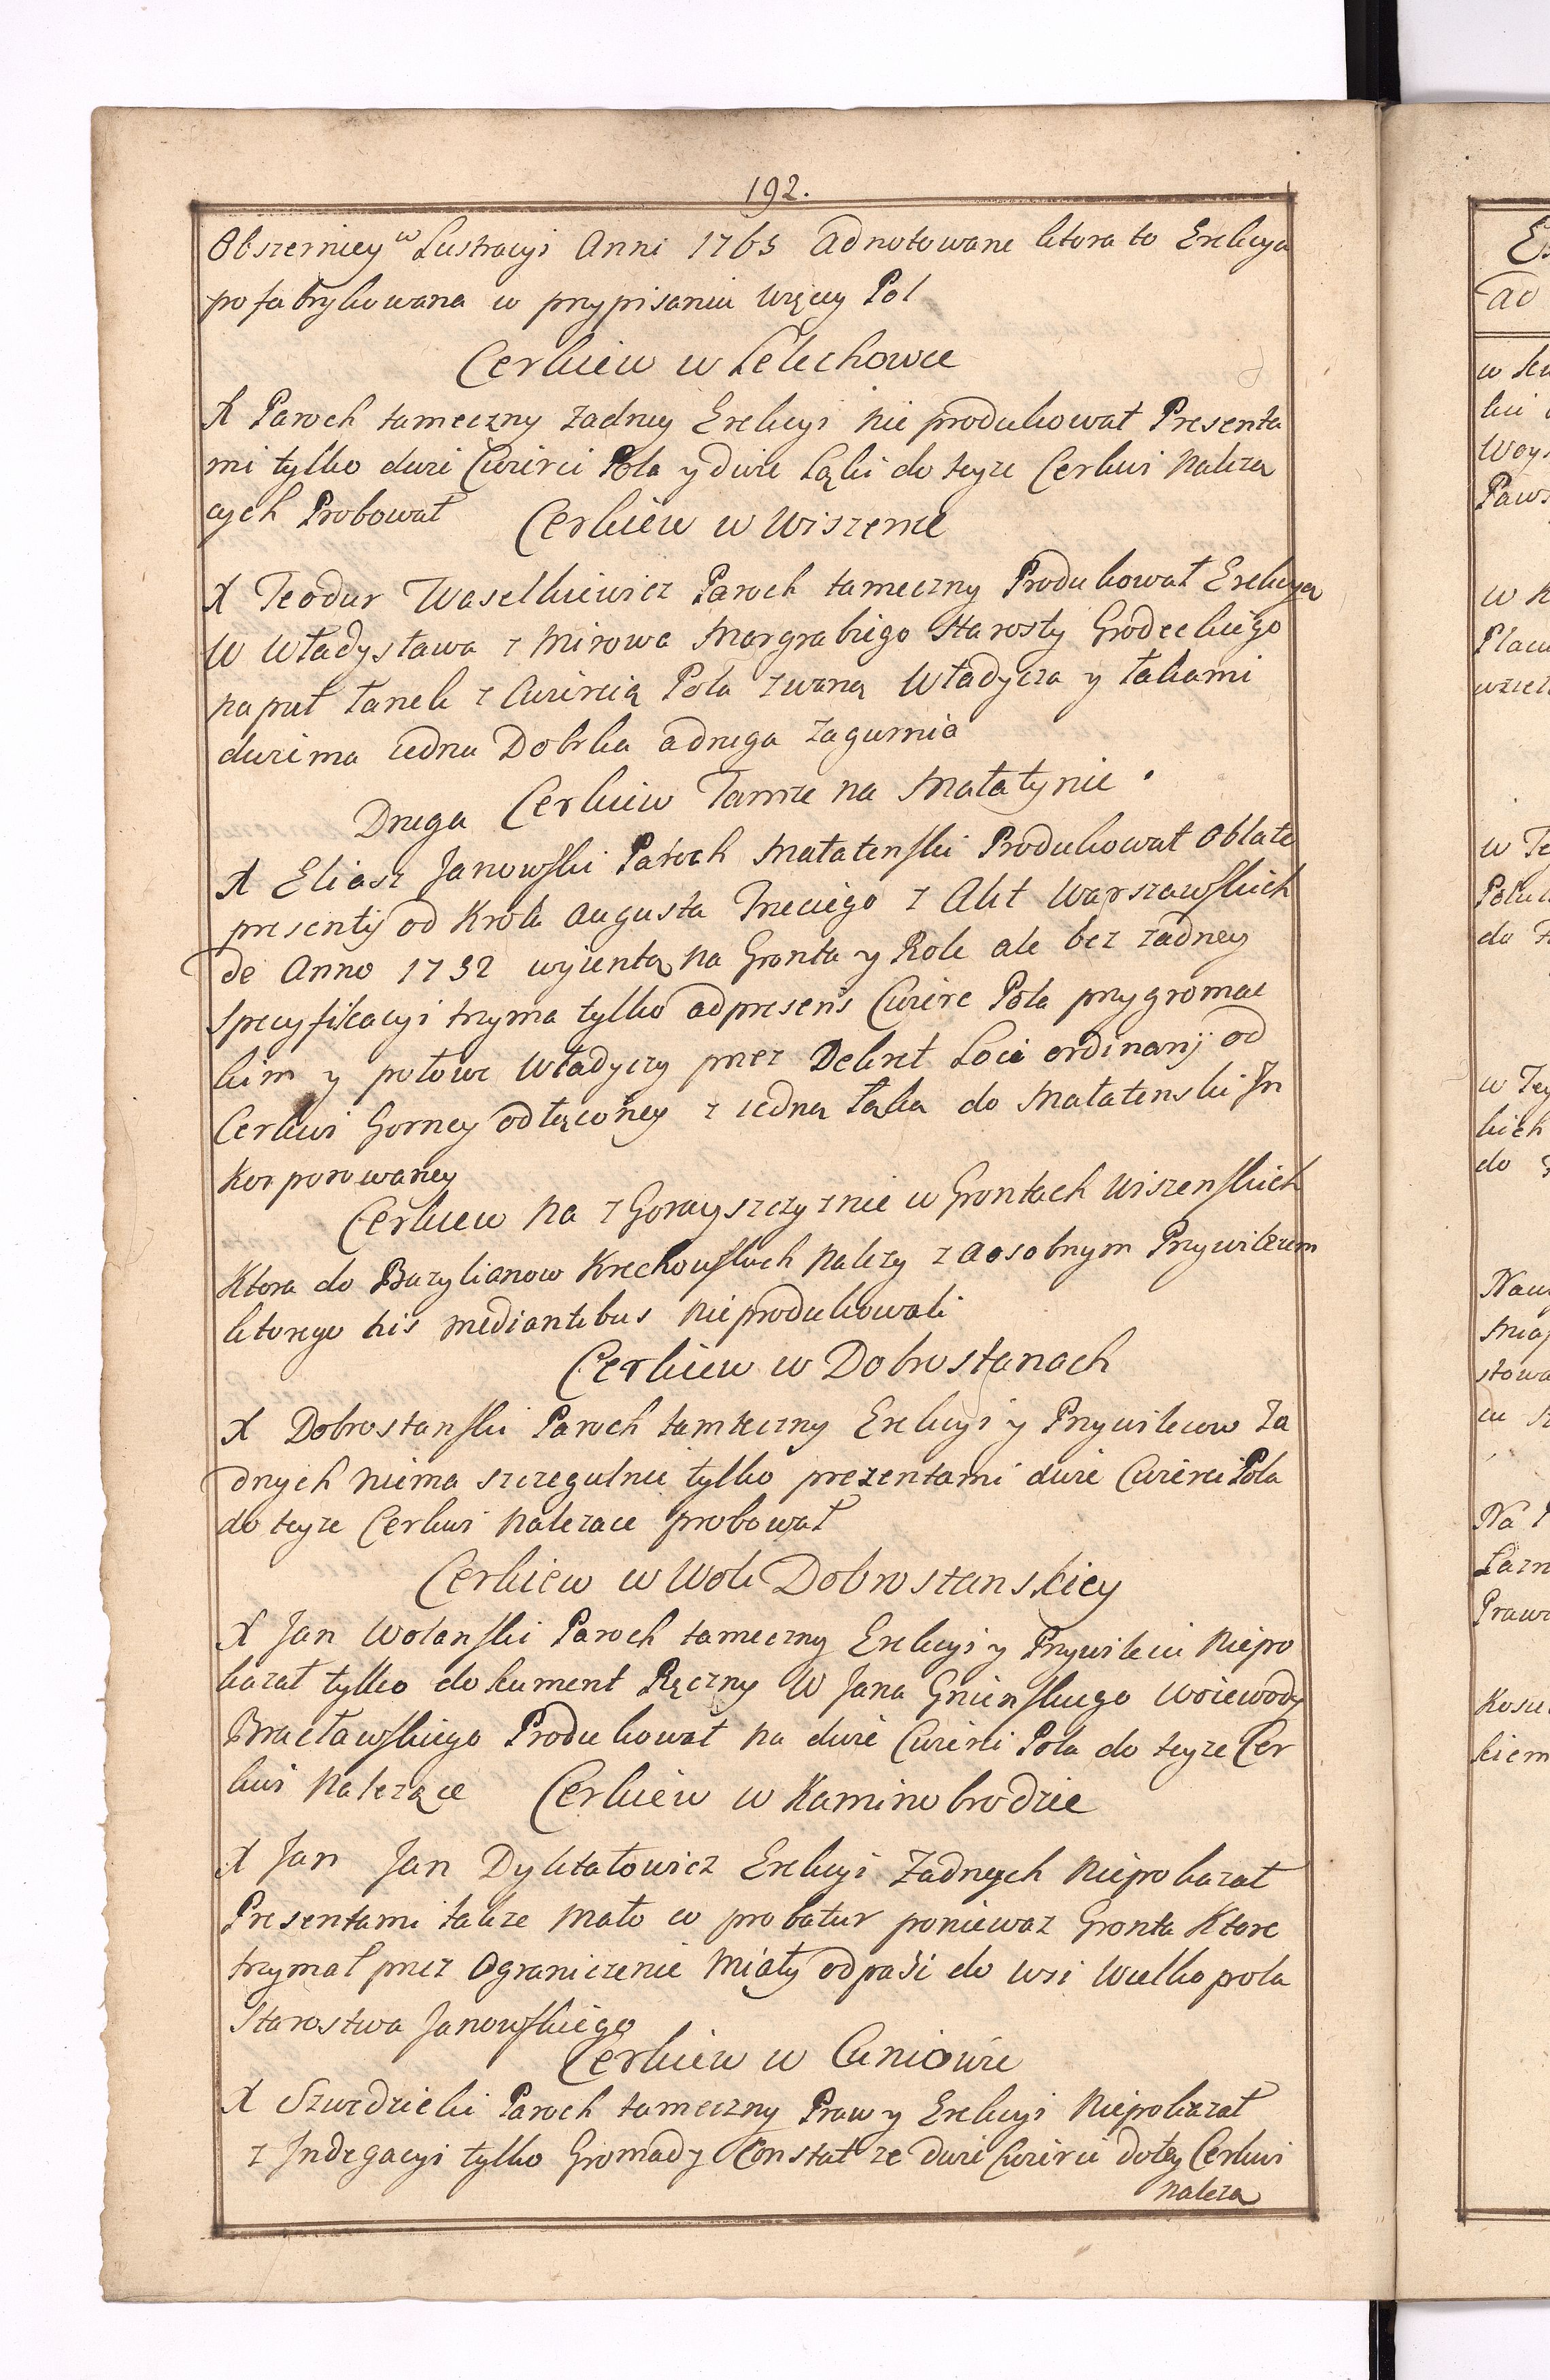 192.
Obszerniey w Lustracyi Anni 1765 adnotowane ktora to Erekcya
pofabrykowana w przypisaniu więcy Pol
Cerkiew w Lelechowce
X Paroch tameczny zadney Erekcyi nie produkował Presenta
mi tylko dwie Cwierci Pola y dwie Łąki do teyze Cerkwi Nalezą
cych Probował Cerkiew w Wiszence
X Teodur Waselkiewicz Paroch tameczny Produkował Erekcya
W Władysława z Mirowa Margrabiego Starosty Grodeckiego
na puł łanek z Cwiercią Pola zwaną Władycza y łakami
dwiema iedna Dobrka a druga Zagurnia
Druga Cerkiew Tamze na Małatynie
X Eliasz Janowski Paroch Małatenski Produkował Oblate
presenty od Krola Augusta Trzeciego z Akt Warszawskich
de Anno 1732 wyientą na Gronta y Role ale bez zadney
specyfikacyi trzyma tylko ad presens Cwierc Pola przy gromac
kim y połowe Władyczy przez Dekret Loci ordinarij od
Cerkwi Gorney odłąconey z iedną Łąka do Małatenski In
korporowaney
Cerkiew na zGorayszczyznie w Grontach Wiszenskich
Ktora do Bazylianow Krechowskich Nalezy za osobnym Przywileiem
ktorego his mediantibus nieprodukowali
Cerkiew w Dobrostanach
X Dobrostanski Paroch tamteczny Erekcyi y Przywileiow Za
dnych niema szczegulnie tylko prezentami dwie Cwierci Pola
do teyze Cerkwi Nalezace probował
Cerkiew w Woli Dobrostanskiey
X Jan Wolanski Paroch tameczny Erekcyi y Przywilei niepo
kazał tylko dokument Ręczny W Jana Gninskiego Woiewody
Bracławskiego Produkował na dwie Cwierci Pola do teyze Cer
kwi Nalezące Cerkiew w Kaminobrodzie
X Jan Jan Dyktałowicz Erekcyi Zadnych niepokazał
Presentami takze mało co probatur poniewaz Gronta Ktore
trzymał przez Ograniczenie miały odpaść do wsi Wielkopola
Starostwa Janowskiego
Cerkiew w Cuniowie
X Szwedzicki Paroch tameczny Praw y Erekcyi niepokazał
z Indegacyi tylko Gromady Constat ze dwie Cwierci do tey Cerkwi
naleza